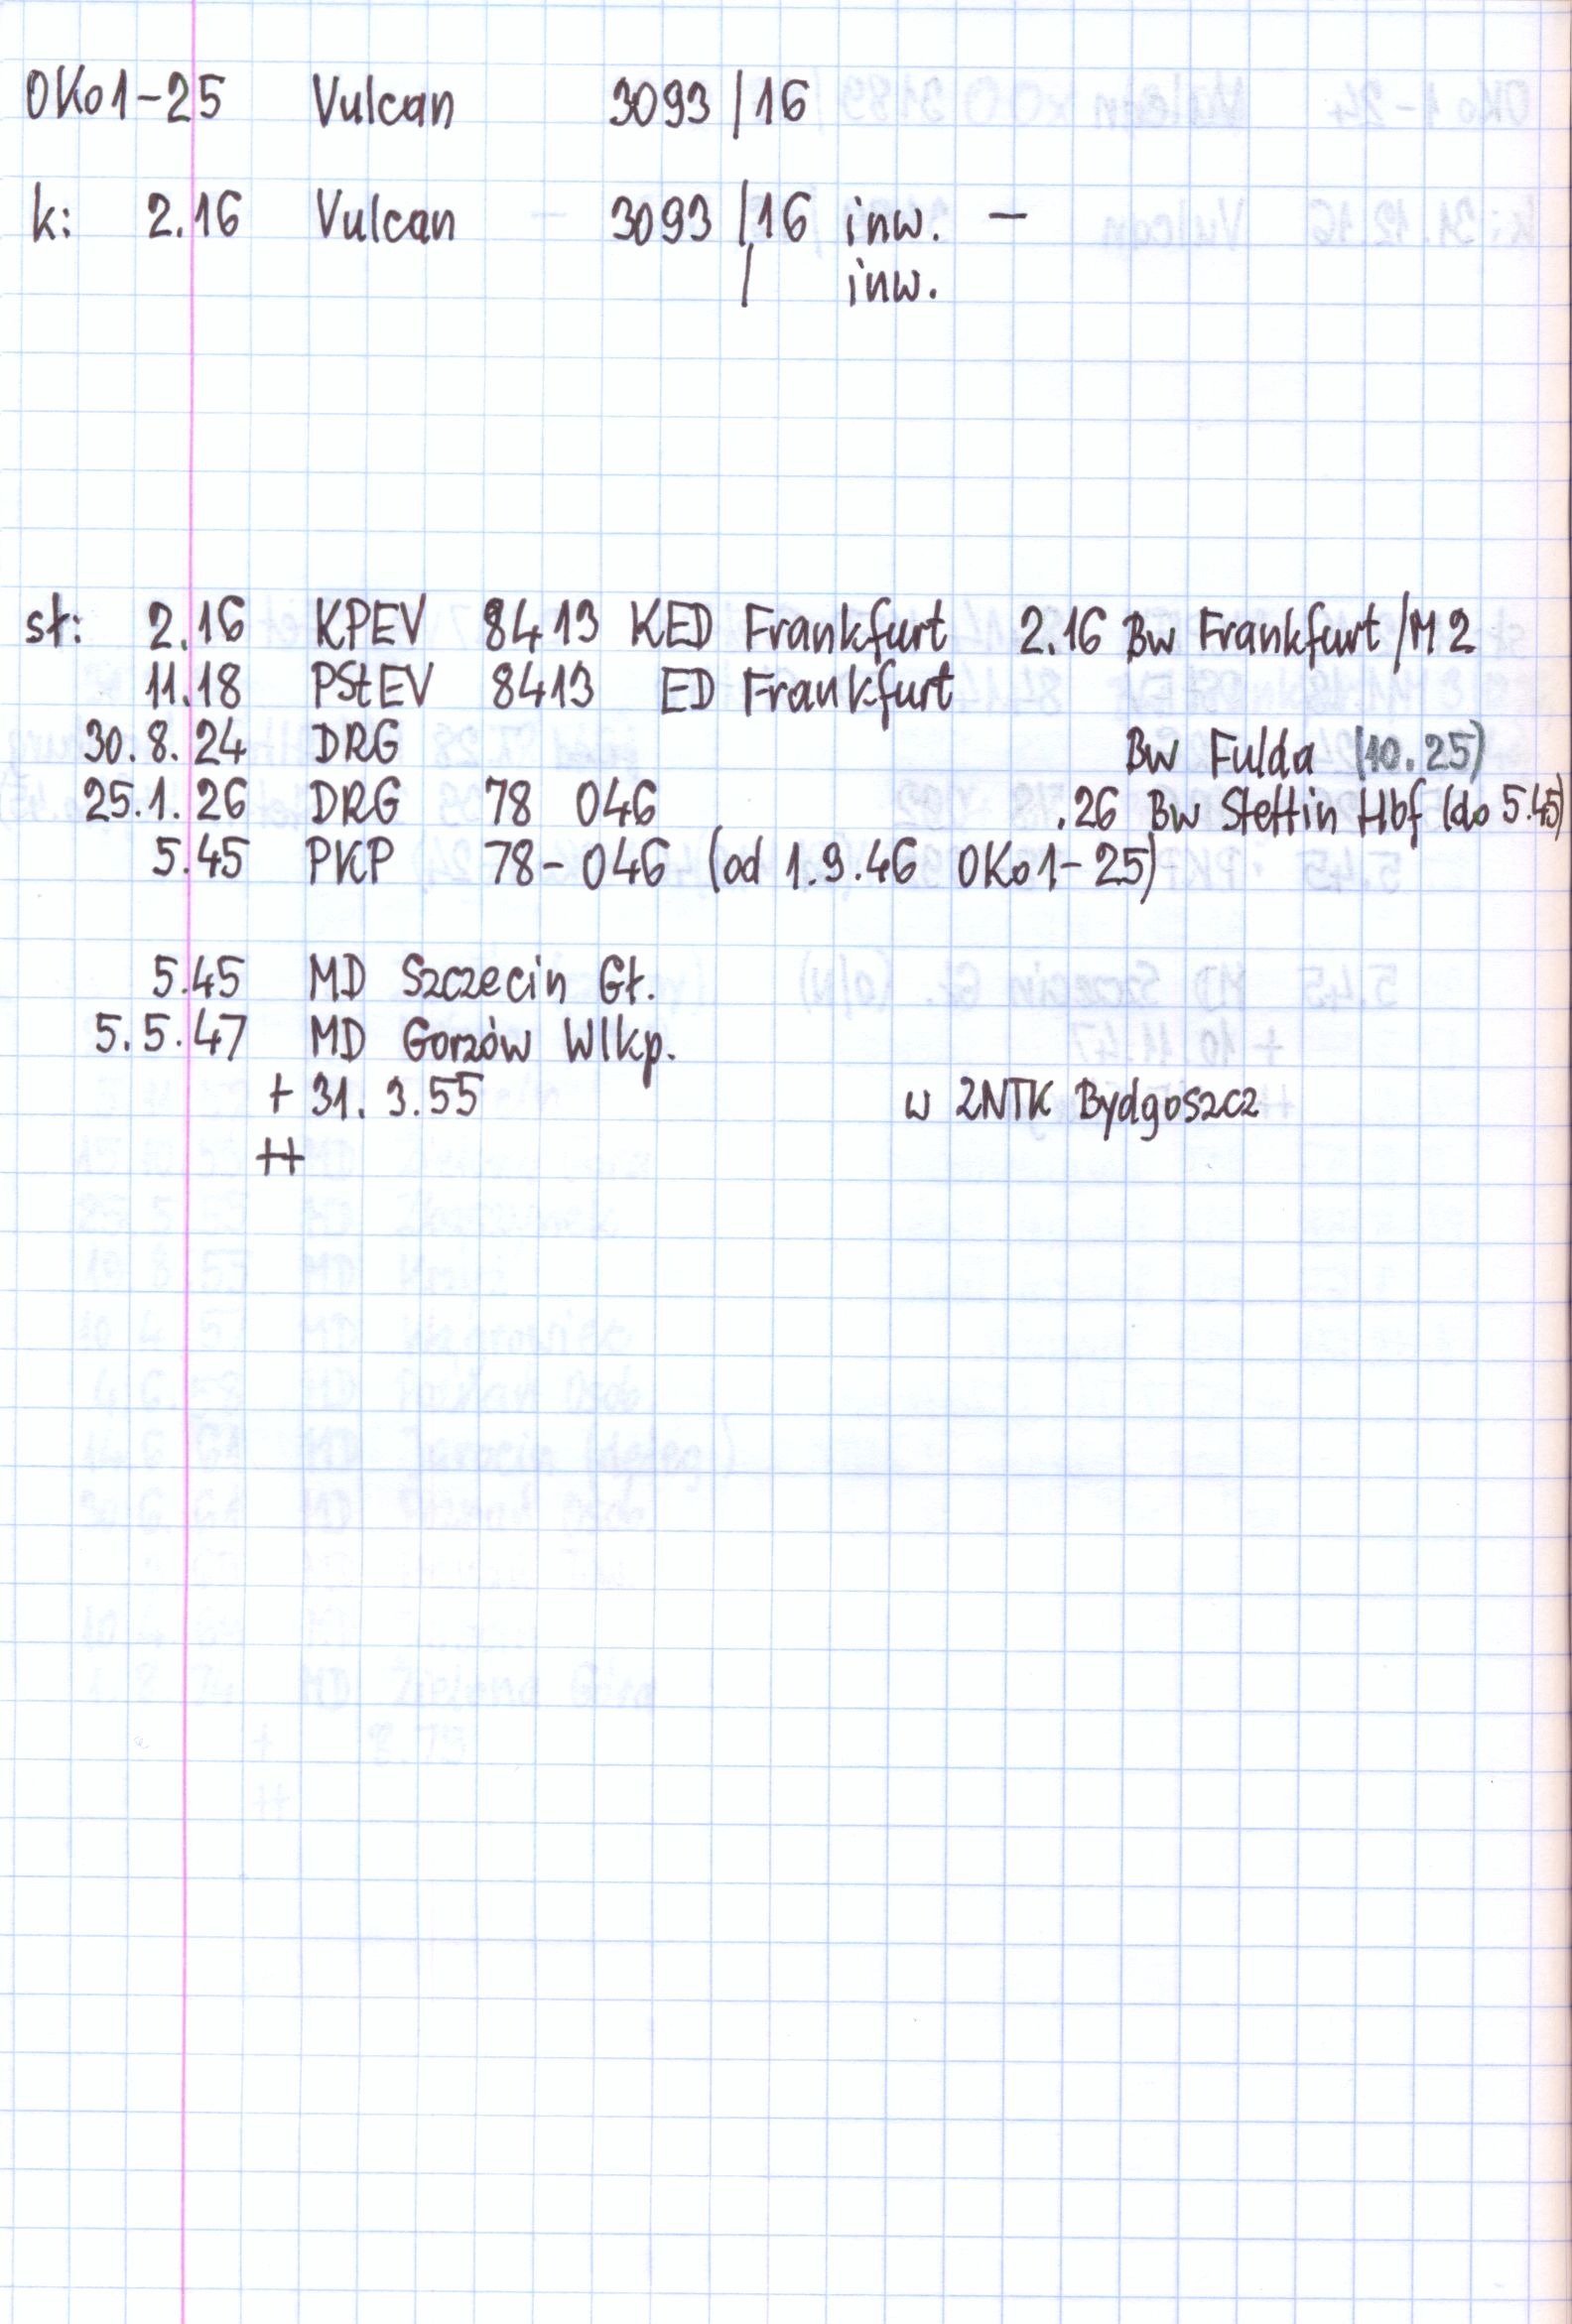 OKo1-25 Vulcan 3093/16
k: 2.16 Vulcan - 3093/16 inw. -
/ inw.
sł: 2.16 KPEV 8413 KED Frankfurt 2.16 Bw Frankfurt/M 2
11.18 PStEV 8413 ED Frankfurt
30.8.24 DRG Bw Fulda (10.25)
25.1.26 DRG 78 046 .26 Bw Stettin Hbf (do 5.45)
5.45 PKP 78-046 (od 1.9.46 OKo1-25)
5.45 MD Szczecin Gł.
5.5.47 MD Gorzów Wlkp.
+ 31.3.55 w ZNTK Bydgoszcz
++